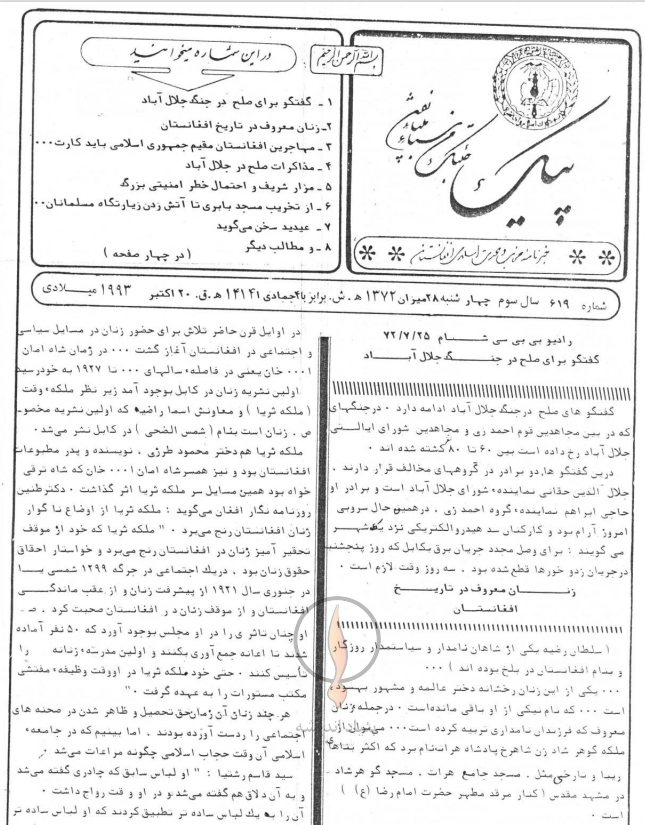 بسم الله الرحمن الرحیم
در این شماره میخوانید
۱ ـ گفتگو برای صلح در جنگ جلال آباد
۲ـ زنان معروف در تاریخ افغانستان
۳ ـ مهاجرین افغانستان مقیم جمهوری اسلامی باید کارت۰۰۰
۴ ـ مذاکرات صلح در جلال آباد
۵ ـ مزار شریف و احتمال خطر امنیتی بزرگ
۶ ـ از تخریب مسجد بابری تا آتش زدن زیارتگاه مسلمانان۰۰
۷ ـ عیدید سخن می‌گوید
۸ ـ و مطالب دیگر
( در چهار صفحه )
پیک
خبرنامه اسلامی افغانستان
شماره ۶۱۹ سال سوم چهار شنبه ۲۸میزان ۱۳۷۲ ه‍ .ش. برابر با ۴جمادی۱ ۱۴۱۴ ه‍ .ق. ۲۰ اکتبر ۱۹۹۳ میلادی
رادیو بی بی سی شام ۷۲/۷/۲۵
گفتگو برای صلح در جنگ جلال آباد
گفتگو های صلح درجنگ جلال آباد ادامه دارد ۰ درجنگهای
که در بین مجاهدین قوم احمد زی و مجاهدین شورای ایالتی
جلال آباد رخ داده است بین ۶۰ تا ۸۰ کشته شده اند ۰
درین گفتگو ها،دو برادر در گروههای مخالف قرار دارند ،
جلال الدین حقانی نماینده شورای جلال آباد است و برادر او
حاجی ابراهم نماینده گروه احمد زی . درهمین حال سروبی
امروز آرام بود و کارکنان سد هیدروالکتریکی نزد یک شهر
می گویند : برای وصل مجدد جریان برق بکابل که روز پنجشنبه
درجریان زدو خورها قطع شده بود ، سه روز وقت لازم است ۰
زنان معروف در تاریخ
افغانستان
( سلطان رضیه یکی از شاهان نامدار و سیاستمدار روزگار
و بنام افغانستان در بلخ بوده اند ) ۰۰۰
۰۰۰ یکی از این زنان رخشانه دختر عالمه و مشهور بهسوده
است ۰۰۰ که نام نیکی از او باقی مانده‌است ۰ درجمله زنان
معروف که فرزندان نامداری تربیه کرده است۰۰۰ می‌توان از
ملکه گوهر شاد زن شاهرخ پادشاه هرات‌نام برد که اکثر بناها
زیبا و تاریخی مثل . مسجد جامع هرات . مسجد گوهرشاد .
در مشهد مقدس ( کنار مرقد مطهر حضرت امام رضا (ع) )
است ۰
در اوایل قرن حاضر تلاش برای حضور زنان در مسایل سیاسی
و اجتماعی در افغانستان آغاز گشت ۰۰۰ در زمان شاه امان
۰۰۰۱ خان یعنی در فاصله سالهای ۰۰۰ تا ۱۹۲۷ به خودرسید
اولین نشریه زنان در کابل بوجود آمد زیر نظر ملکه وقت
( ملکه ثریا ) و معاونش اسما راضیه که اولین نشریه مخصو
ص . زنان است بنام (شمس الضحی ) در کابل نشر می‌شد۰
ملکه ثریا هم دختر محمود طرزی . نویسنده و پدر مطبوعات
افغانستان بود و نیز همسر شاه امان ۰۰۰۱ خان که شاه ترقی
خواه بود همین مسایل سر ملکه ثریا اثر گذاشت ۰ دکتر طنین
روزنامه نگار افغان می‌گوید : ملکه ثریا از اوضاع نا گوار
زنان افغانستان رنج می‌برد ۰ " ملکه ثریا که خود از موقف
تحقیر آمیز زنان در افغانستان رنج می‌برد و خواستار احقاق
حقوق زنان بود . دریک اجتماعی در جرگه ۱۲۹۹ شمسی یـــا
در جنوری سال ۱۹۲۱ از پیشرفت زنان و از عقب ماندگی
افغانستان و از موقف زنان د ر افغانستان صحبت کرد . ص
او چنان تاثری را در او مجلس بوجود آورد که ۵۰ نفر آماده
شدند تا اعانه جمع آوری بکنند و اولین مدرسه زنانه را
تأسیس کنند ۰ حتی خود ملکه ثریا در اووقت وظیفه مفتشی
مکتب مستورات را به عهده گرفت ۰ "
هر چند زنان آن زمان‌حق تحصیل و ظاهر شدن در صحنه های
اجتماعی را ردست آوزده بودند . اما ببینیم که در جامعه
اسلامی آن وقت حجاب اسلامی چگونه مراعات می‌شد ۰
سید قاسم رشتیا : " او لباس سابق که چادری گفته می‌شد
و به آن دلاق هم گفته می‌شد.و در او و قت رواج داشت ۰
آن را به یک لباس ساده تر تطبیق کردند که او لباس ساده تر